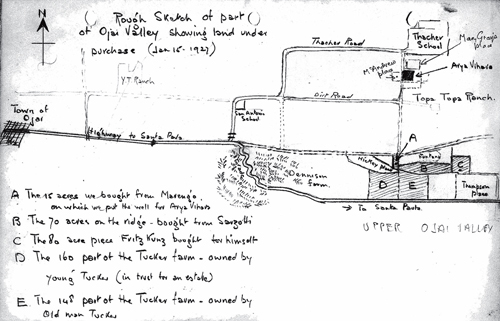 N
Rough Sketch of part
of Ojai Valley showing land under
purchase (Jan 15-1927)
Thacher
School
Thacher Road
Arya Vihara
McAndrew
place
Topa Topa Ranch.
Y.T. Ranch
Dirt Road
San Antonio
School
Town of
Ojai
Highway to Santa Paula
A
Dennison
farm.
B
C
D
E
Thompson
place
→ To Santa Paula
UPPER OJAI VALLEY
A The 15 acres we bought from Marengo,
on which we put the well for Arya Vihara
B The 70 acres on the ridge - bought from
C The 80 acre piece Fritz Kunz bought for himself
D The 160 part of the Tucker farm - owned by
young Tucker (in trust for an estate)
E The 148 part of the Tucker farm - owned by
Old man Tucker